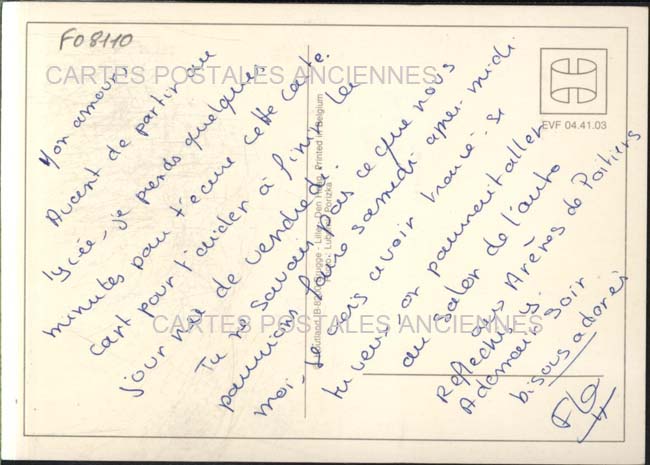 F08110
CARTES POSTALES ANCIENNES
EVF 04.41.03
Mon amour.
Avant de partir au
lycée, je prends quelques
minutes pour t'écrire cette carte.
cart pour t'aider à finir ta
journée de vendredi.
Tu ne savais pas ce que nous
pourrions faire samedi après-midi
moi, je crois avoir trouvé. Si
tu veux, on pourrait aller
au salon de l'auto
aux Arènes de Poitiers
Réfléchis y.
A demain soir
bisous adorés
Flo
CARTES POSTALES ANCIENNES
Brugge - Lille - Den Haag. Printed in Belgium